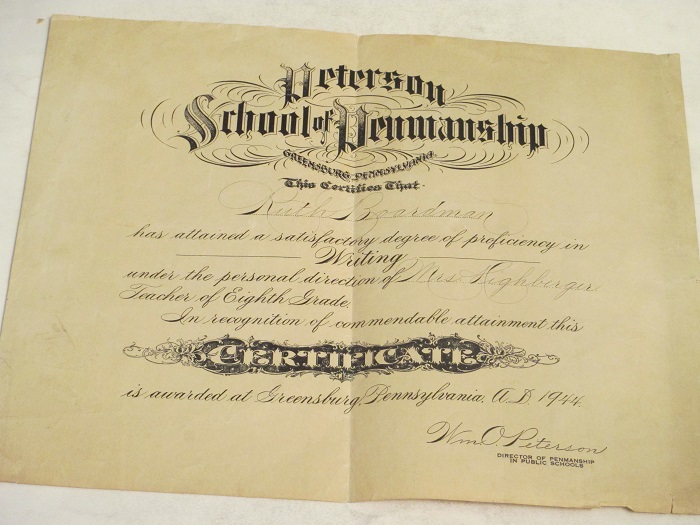 Peterson
School of Penmanship
GREENSBURG, PENNSYLVANIA.
This Certifies That
Ruth Boardman
has attained a satisfactory degree of proficiency in
Writing
under the personal direction of Mrs. Highberger
Teacher of Eighth Grade.
In recognition of commendable attainment this
CERTIFICATE
is awarded at Greensburg, Pennsylvania, A.D. 1944.
Wm. O. Peterson
DIRECTOR OF PENMANSHIP
IN PUBLIC SCHOOLS